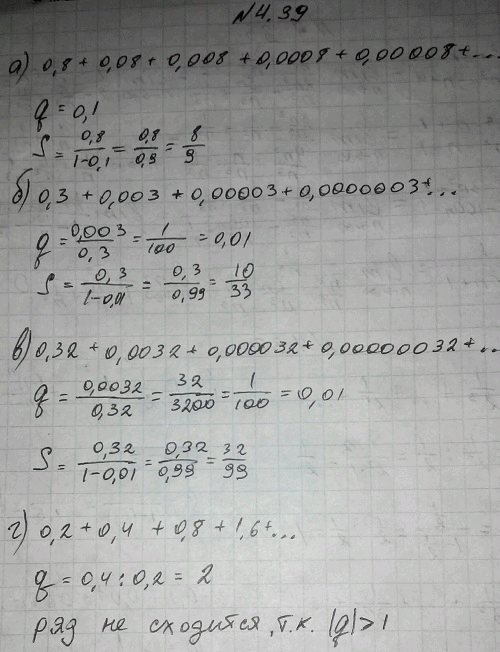 №4.39
а) 0,8 + 0,08 + 0,008 + 0,0008 + 0,00008 + ...
q = 0,1
S = 0,8/1-0,1 = 0,8/0,9 = 8/9
б) 0,3 + 0,003 + 0,00003 + 0,0000003 + ...
q = 0,003/0,3 = 1/100 = 0,01
S = 0,3/1-0,01 = 0,3/0,99 = 10/33
в) 0,32 + 0,0032 + 0,000032 + 0,00000032 + ...
q = 0,0032/0,32 = 32/3200 = 1/100 = 0,01
S = 0,32/1-0,01 = 0,32/0,99 = 32/99
г) 0,2 + 0,4 + 0,8 + 1,6 + ...
q = 0,4 : 0,2 = 2
ряд не сходится, т.к. |q| > 1